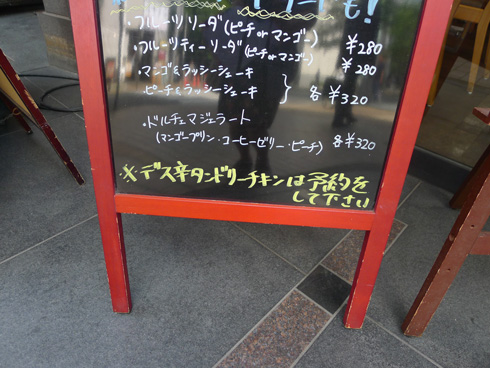 も!
・フルーツソーダ(ピーチorマンゴー) ¥280
・フルーツティーソーダ(ピーチorマンゴー) ¥280
・マンゴー&ラッシーシェーキ
・ピーチ&ラッシーシェーキ } 各¥320
・ドルチェマジェラート
(マンゴープリン・コーヒーゼリー・ピーチ) 各¥320
※デス辛タンドリーチキンは予約を
して下さい